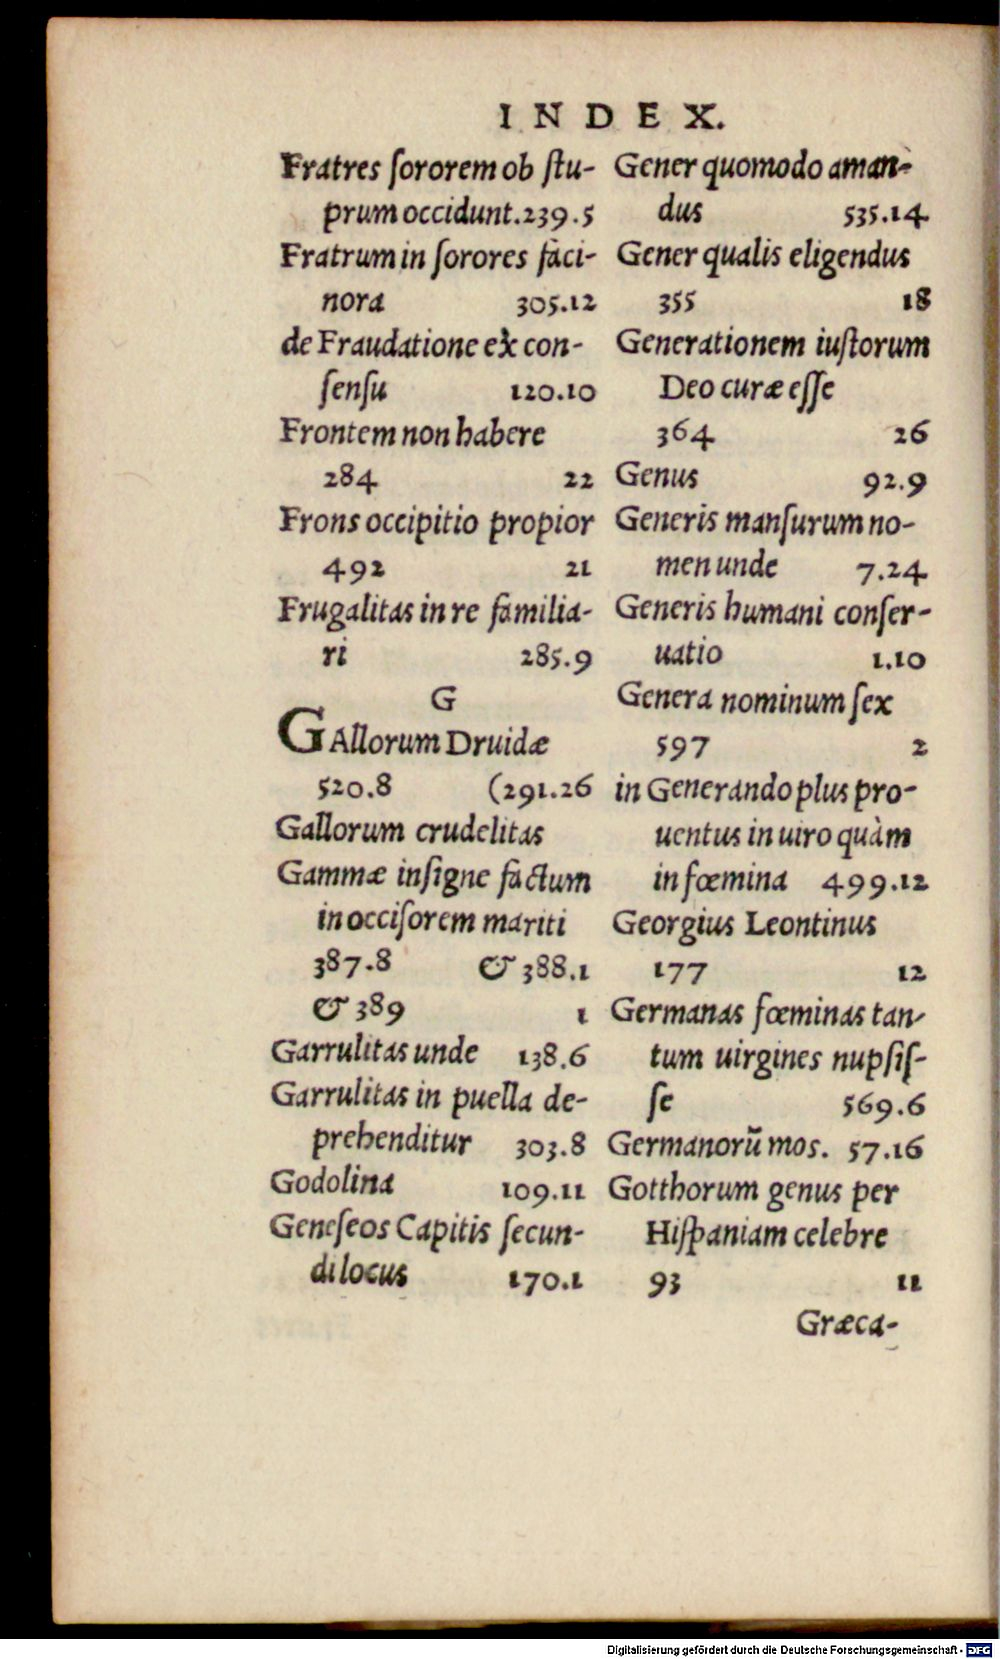 INDEX.
Fratres ſororem ob ſtu-
prum occidunt. 239.5
Fratrum in ſorores faci-
nora 305.12
de Fraudatione ex con-
ſenſu 120.10
Frontem non habere
284 22
Frons occipitio propior
492 21
Frugalitas in re familia-
ri 285.9
G
GAllorum Druidæ
520.8 (291.26
Gallorum crudelitas
Gammæ inſigne factum
in occiſorem mariti
387.8 & 388.1
& 389 1
Garrulitas unde 138.6
Garrulitas in puella de-
prehenditur 303.8
Godolina 109.11
Geneſeos Capitis ſecun-
di locus 170.1
Gener quomodo aman-
dus 535.14
Gener qualis eligendus
355 18
Generationem iuſtorum
Deo curæ eſſe
364 26
Genus 92.9
Generis manſurum no-
men unde 7.24
Generis humani conſer-
uatio 1.10
Genera nominum ſex
597 2
in Generando plus pro-
uentus in uiro quàm
in fœmina 499.12
Georgius Leontinus
177 12
Germanas fœminas tan-
tum uirgines nupſiſ-
ſe 569.6
Germanorũ mos. 57.16
Gotthorum genus per
Hiſpaniam celebre
93 11
Græca-
Digitalisierung gefördert durch die Deutsche Forschungsgemeinschaft - DFG